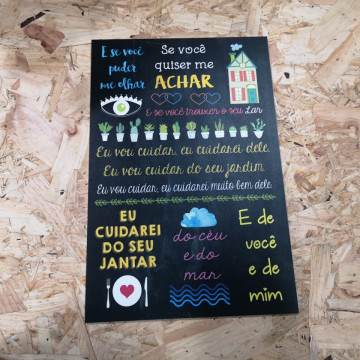 E se você
puder
me olhar
Se você
quiser me
ACHAR
E se você trouxer o seu Lar
Eu vou cuidar, eu cuidarei dele,
Eu vou cuidar do seu jardim
Eu vou cuidar, eu cuidarei muito bem dele
EU
CUIDAREI
DO SEU
JANTAR
do céu
e do
mar
E de
você
e de
mim